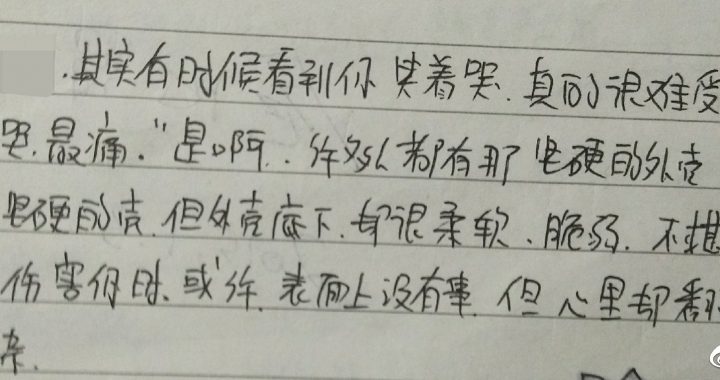 .其实有时候看到你笑着哭.真的很难受
哭.最痛."是啊..许多人都有那坚硬的外壳
坚硬的壳.但外壳底下.却很柔软、脆弱.不堪
伤害你时.或许.表面上没有事.但心里却翻